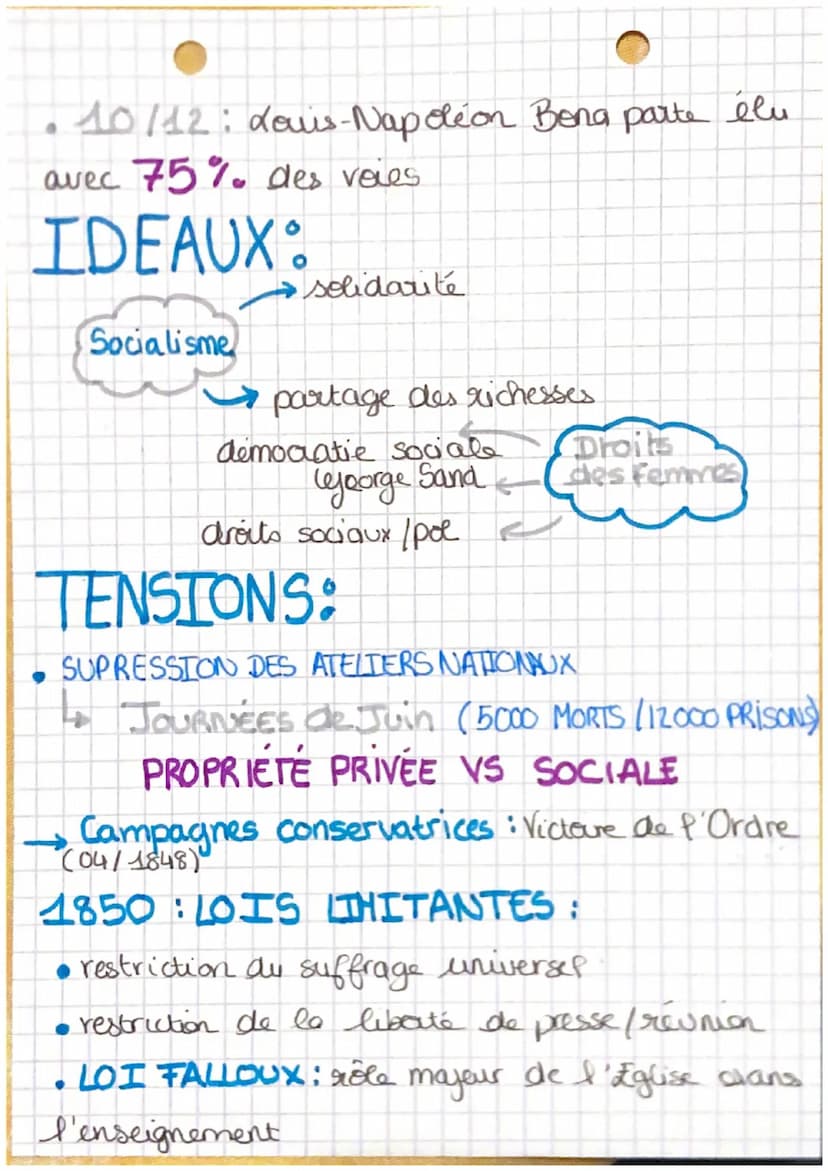 . 10/12 : Louis-Napoléon Bonaparte élu
avec 75% des voies
IDEAUX:
→ solidarité
Socialisme
→ partage des richesses
démocratie sociale
George Sand
Droits
des Femmes
droits sociaux / pol
TENSIONS:
• SUPRESSION DES ATELIERS NATIONAUX
↳ JOURNÉES de Juin (5000 MORTS / 12000 PRISONS)
PROPRIÉTÉ PRIVÉE VS SOCIALE
→ Campagnes conservatrices : Victoire de l'Ordre
(04/1848)
1850 : LOIS LIMITANTES :
• restriction du suffrage universel
• restriction de la liberté de presse/réunion
• LOI FALLOUX : rôle majeur de l'Église dans
l'enseignement